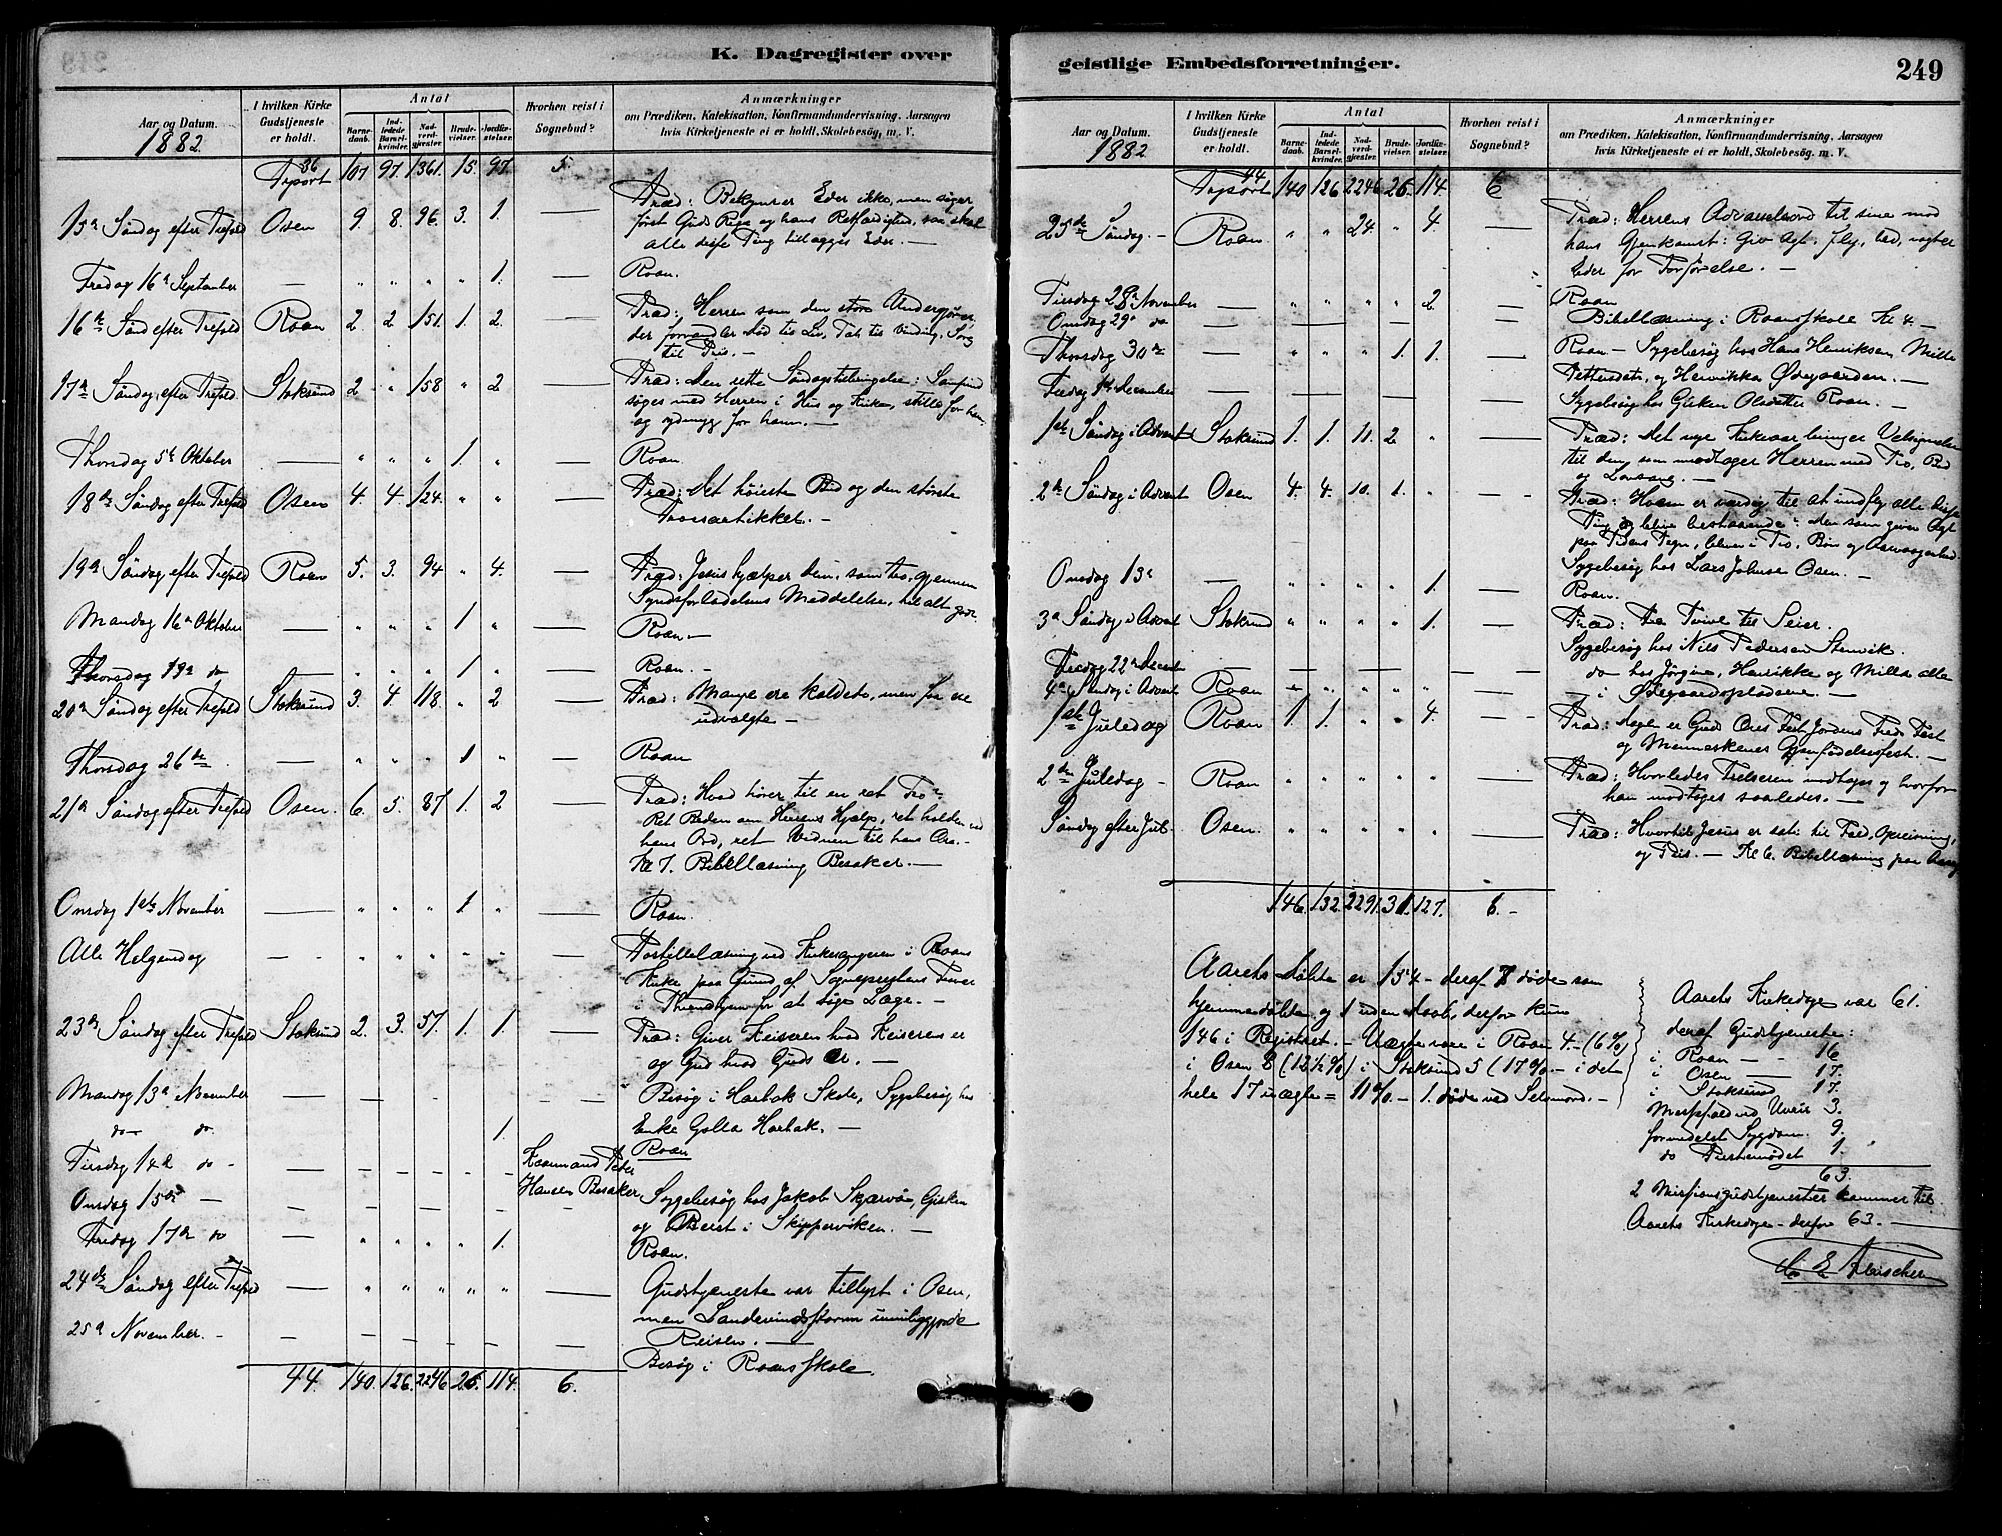 K. Dagregister over
Aar og Datum.
1882.
I hvilken Kirke Gudstjeneste er holdt.
Antal
Barnedaab.
Indledede Barselkvinder.
Nadverdgjester.
Brudevielser.
Jordfæstelser.
Hvorhen reist i Sognebud?
Anmærkninger
om Prædiken, Katekisation, Konfirmandundervisning, Aarsagen
hvis Kirketjeneste ei er holdt, Skolebesøg, m. V.
Trsport 36 107 97. 1361. 15. 97. 5.
15de Søndag efter Trefold. Osen 9. 8. 96. 3. 1. — Præd: Bekymrer Eder ikke, men søger
først Guds Rige og hans Retfærdighed, saa skal
alle disse Ting tillægges Eder. —
Fredag 16de September — " " " " 1. — Roan.
16de Sønd efter Trefold Roan 2. 2 151. 1. 2. — Præd: Herren som den store Undergjører,
der forvandler Død til Liv, Tab til Vinding, Sorg
til Pris. —
17de Søndag efter Trefold. Stoksund 2 " 158 " 2 — Præd: Den rette Søndagshelligelse:
søges med Herren i Hus og Kirke, stille for ham
og ydmyg for ham. —
Thorsdag 5te Oktober — " " " 1. " — Roan.
18de Søndag efter Trefold Osen 4. 4. 124. " " — Præd: Det høieste Bud og den største
Trosartikkel. —
19de Søndag efter Trefold Roan 5. 3. 94 " 4. — Præd: Jesus hjælper dem, som tro, gjennem
Syndsforladelsens Meddelelse, til alt godt.
Mandag 16de Oktober — " " " 1 " — Roan. —
Thorsdag 19de do — " " " 1 " — Roan. —
20de Søndag efter Trefold Stoksund 3. 4. 118. " 2 — Præd: Mange ere kaldede, men faa ere
udvalgte —
Thorsdag 26de — " " " 1 " — Roan
21de Søndag efter Trefold Osen. 6. 5. 87. 1. 2 — Præd: Hvad hører til en ret Tro:
Ret Beden om Herrens Hjælp, ret holden ved
hans Ord, ret Vidnen til hans Ære. —
Kl 7. Bibellæsning Besaker. —
Onsdag 1ste November — " " " 1 " — Roan.
Alle Helgensdag — " " " " " — Postillelæsning ved Kirkesangeren i Roans
Kirke paa Grund af Sogneprestens
i Throndhjem for at søge Læge. —
23de Søndag efter Trefold Stoksund 2. 3. 57. 1. 1. — Præd: Giver Keiseren hvad Keiserens er
og Gud hvad Guds er. —
Mandag 13de November — Besøg i Harbak Skole, Sygebesøg hos
do do. 1. Enke Golla Harbak. —
Tirsdag 14de do — Kaarmand Peder Hansen Besaker Roan
Onsdag 15de — Sygebesøg hos Jakob Skjærvø, Gisken
og Berit i Skipperviken. —
Fredag 17de do — " " " " 1. Roan.
24de Søndag efter Trefold — " " " " " — Gudstjeneste var tillyst i Osen,
men Søndenvindsstorm umuliggjorde
Reisen. —
25de November. — Besøg i Roans Skole.
44. 140. 126. 2246 26. 114. 6.
geistlige Embedsforretninger.
249
Aar og Datum.
1882
I hvilken Kirke Gudstjeneste er holdt.
Antal
Barnedaab.
Indledede Barselkvinder.
Nadverdgjester.
Brudevielser.
Jordfæstelser.
Hvorhen reist i Sognebud?
Anmærkninger
om Prædiken, Katekisation, Konfirmandundervisning, Aarsagen
hvis Kirketjeneste ei er holdt, Skolebesøg, m. V.
Trsport 44 140 126 2246 26. 114. 6
25de Søndag. — Roan " " 24. " 4. — Præd: Herrens Advarselsord til sine mod
hans Gjenkomst: Giv Agt, fly, bed, vogter
Eder for Forførelse. —
Tirsdag 28de November — " " " " 2. — Roan
Onsdag 29de do — Bibellæsning i Roans Skole Kl 4. —
Thorsdag 30te — " " " 1. 1. — Roan — Sygebesøg hos Hans Henriksen, Mille
Pettersdatr, og Henrikka Ødegaarden. —
Fredag 1ste December — Sygebesøg hos Gisken Olsdatter Roan. —
1ste Søndag i Advent Stoksund 1. 1. 11. 2. " — Præd: Det nye Kirkeaar bringer Velsignelse
til dem, som modtager Herren med Tro, Bøn
og Lovsang. —
2den Søndag i Advent Osen 4. 4. 10. 1. " — Præd: Hvem er værdig til at undfly alle disse
Ting og blive bestaaende: den som giver Agt
paa Tidens Tegn, bliver i Tro, Bøn og Aarvaagenhed
Sygebesøg hos Lars Johnsen Osen. —
Onsdag 13de — " " " " 1. — Roan.
3de Søndag i Advent Stoksund " " " " 1. — Præd: Fra Tvivl til Seier.
Sygebesøg hos Nils Pedersen Stenvik.
Fredag 22de December — do hos Jørgine, Henrikke og Mille alle
4de Søndag i Advent Roan " " " " " — i Ødegaardspladsene. —
1ste Juledag Roan 1. 1. " " 4. — Præd: Dagen er Guds Æres Fest, Jordens Freds Fest
og Menneskenes Gjenfødelsesfest. —
2den Juledag — Roan " " " " " — Præd: Hvorledes Frelseren modtages og hvorfor
han modtages saaledes. —
Søndag efter Jul. Osen. " " " " " — Præd: Hvortil Jesus er sat: til Fald, Opreisning,
og Pris. — Kl 6. Bibellæsning paa
146. 132. 2291. 31. 127. 6. —
Aarets Døbte er 154 — deraf 7 døde som
hjemmedøbte og 1 uden Daab, derfor kun
146 i Registret. — Uægte vare i Roan 4. — (6%)
i Osen 8 (12½%) i Stoksund 5 (17%) — i det
hele 17 uægte = 11% — 1. døde ved Selvmord. —
Aarets Kirkedage var 61.
deraf Gudstjeneste:
i Roan — 16
i Osen — 17.
i Stoksund 17.
Messefald ved Uveir 3.
formedelst Sygdom. 9.
do Prestemødet 1.
63.
2 Missionsgudstjenester kommer til
Aarets Kirkedage — derfor 63. —